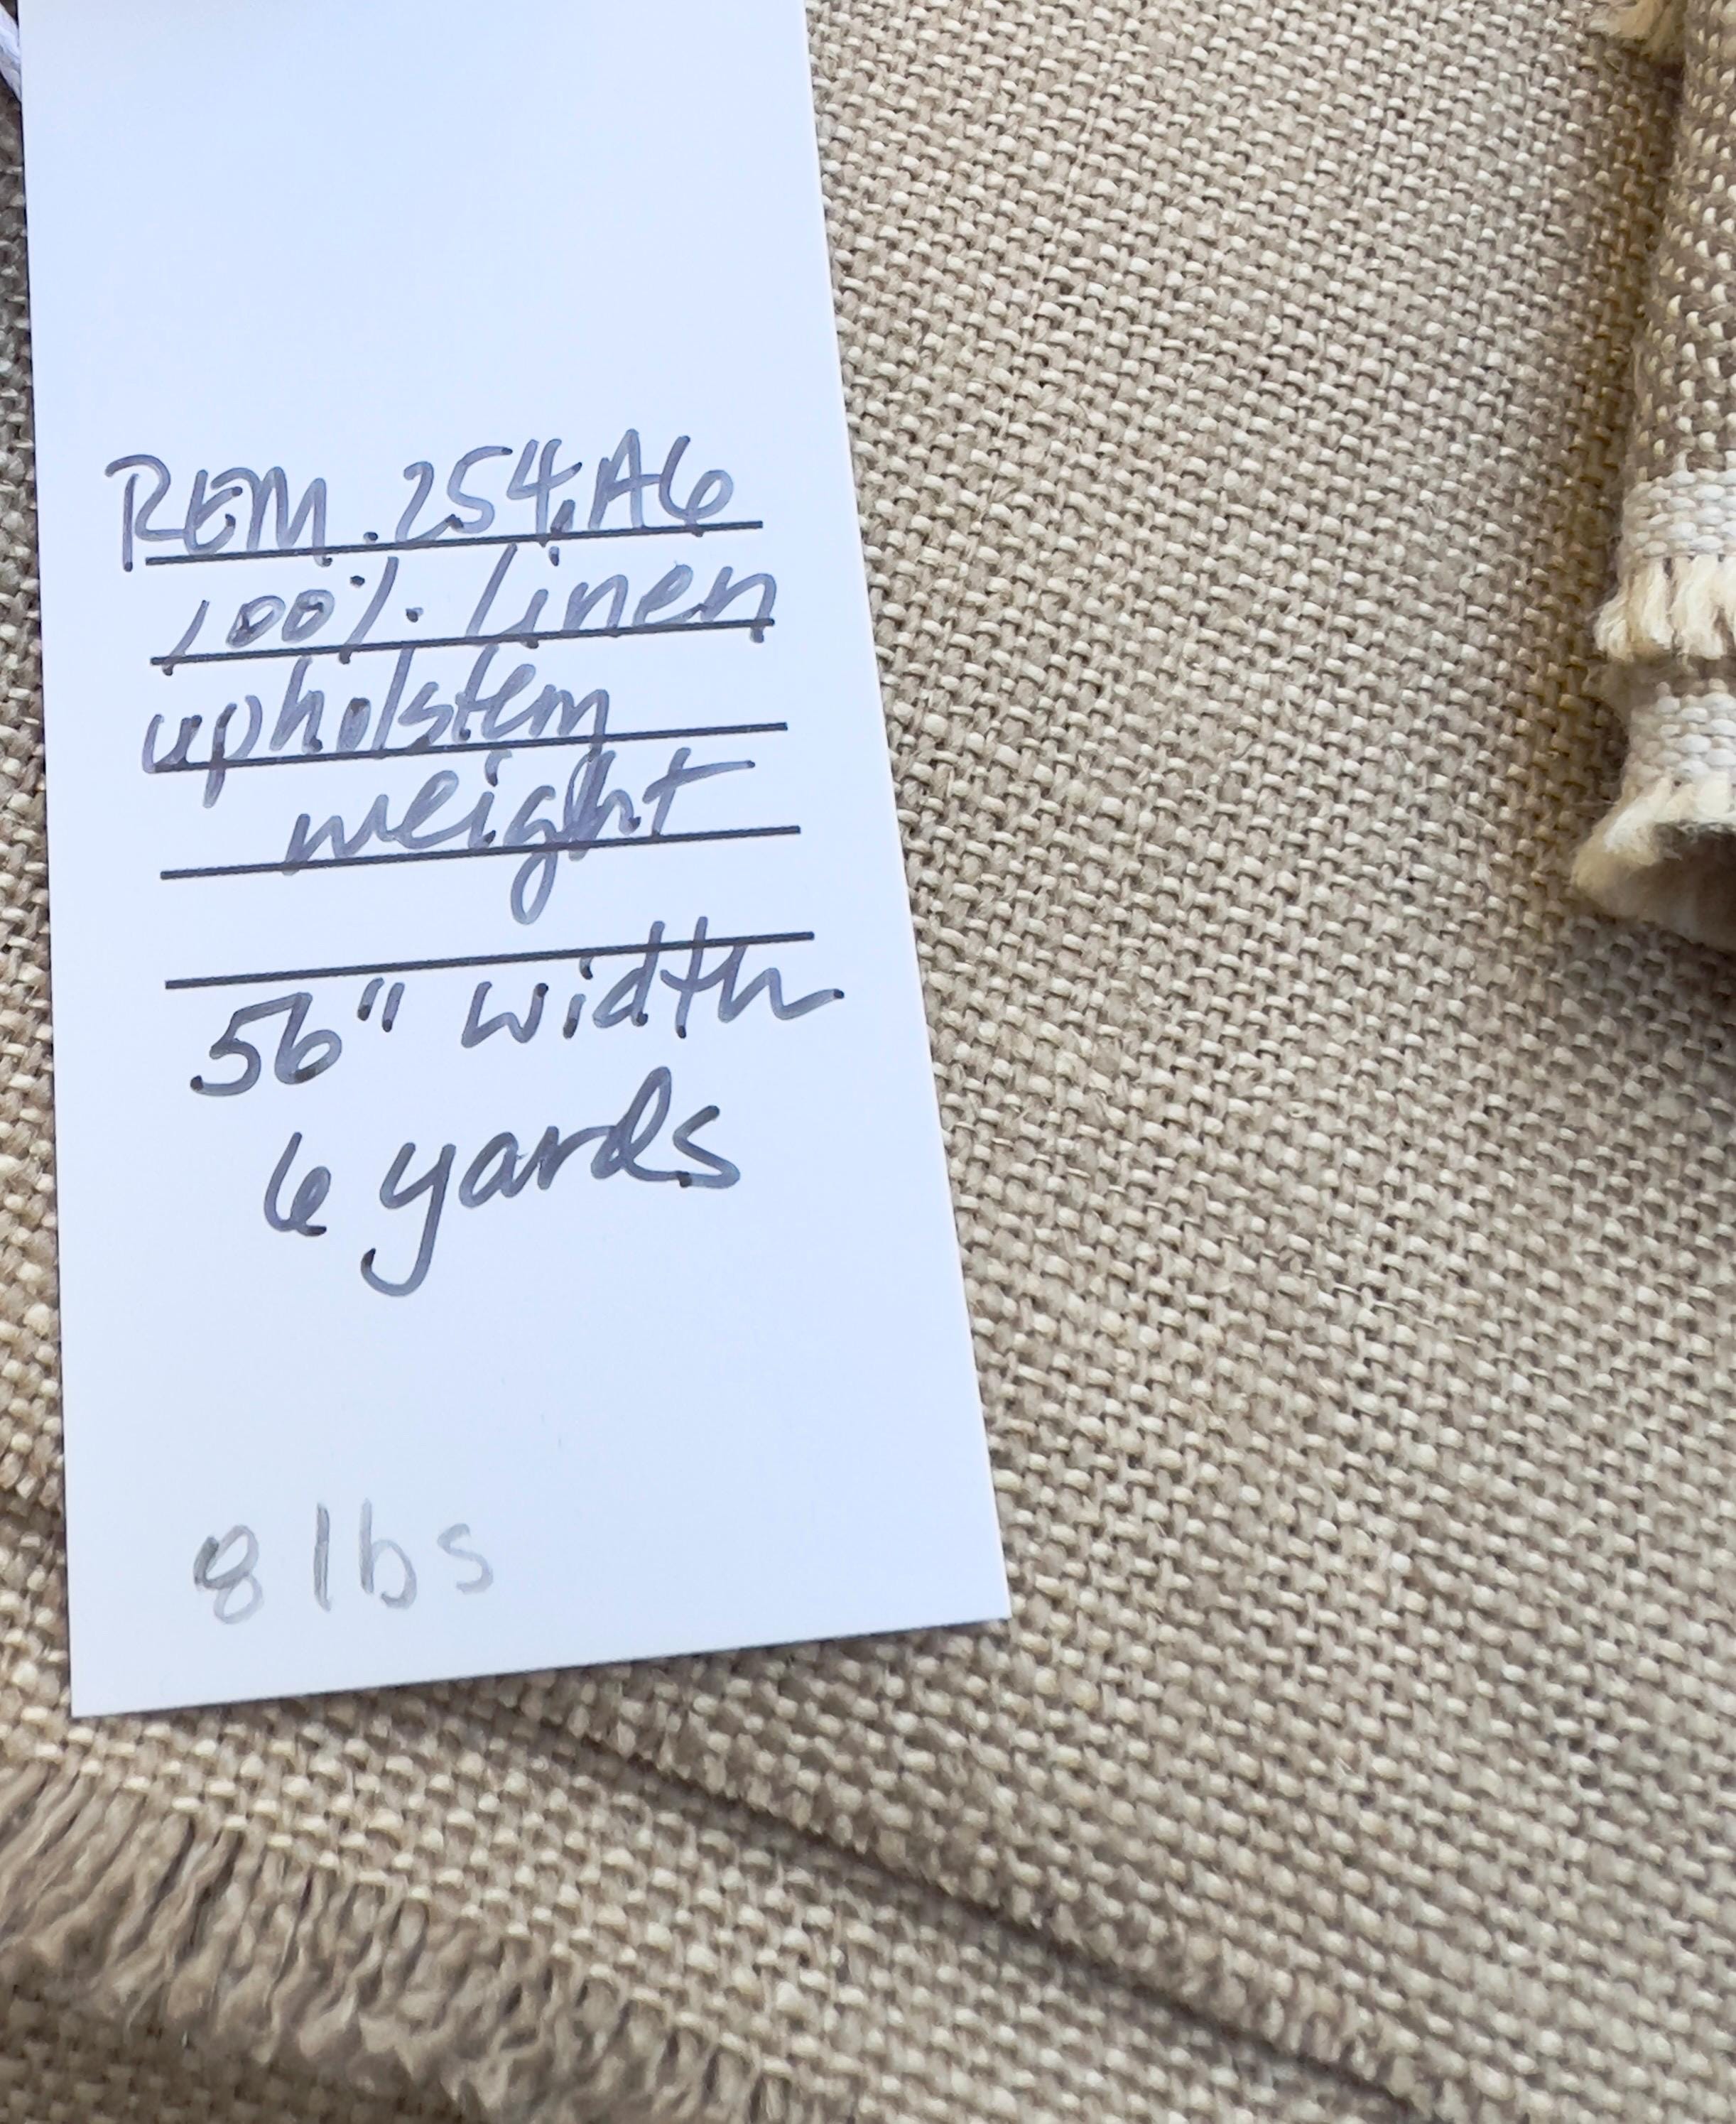 REM.254.A6
100% linen
upholstery
weight
56" width
6 yards
8 lbs